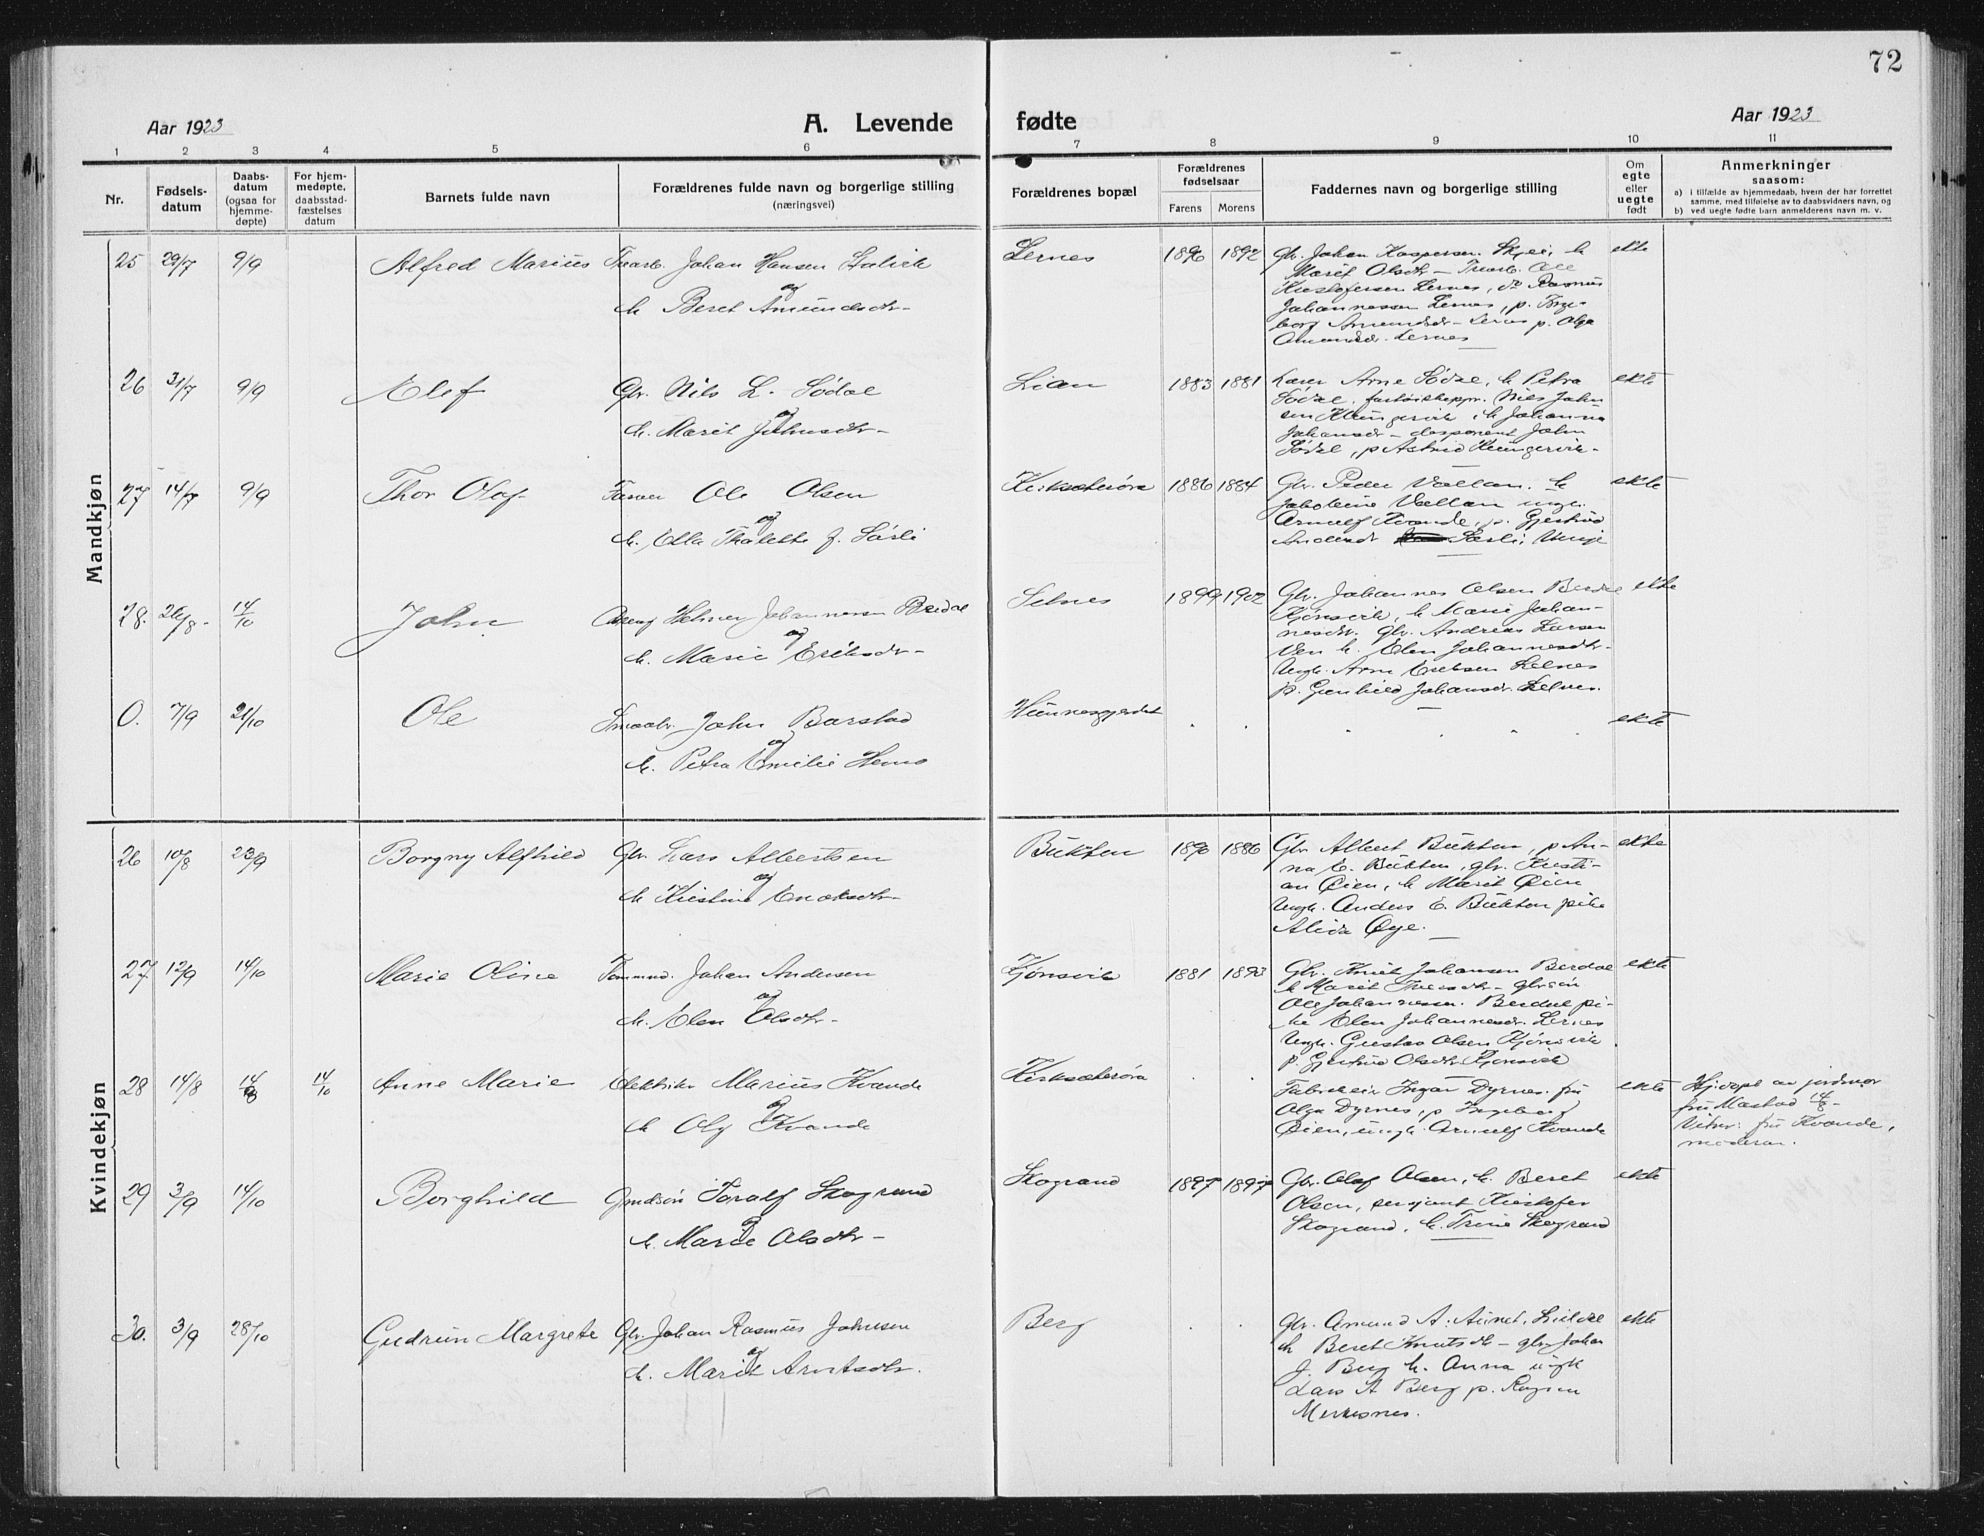 72
Aar 1923
A. Levende fødte
Aar 1923
1 2 3 4 5 6 7 8 9 10 11
Nr.
Fødsels-
datum
Daabs-
datum
(ogsaa for
hjemme-
døpte)
For hjem-
medøpte,
daabsstad-
fæstelses
datum
Barnets fulde navn
Forældrenes fulde navn og borgerlige stilling
(næringsvei)
Forældrenes bopæl
Forældrenes
fødselsaar
Farens Morens
Faddernes navn og borgerlige stilling
Om
egte
eller
uegte
født
Anmerkninger
saasom:
a) i tilfælde av hjemmedaab, hvem der har forrettet
samme, med tilføielse av to daabsvidners navn, og
b) ved uegte fødte barn anmelderens navn m. v.
Mandkjøn
25 29/7 9/9 Alfred Marius Johan Hansen
og
h. Beret Amundsdtr-
Lernes 1896 1892 Gbr. Johan Kaspersen Skjei, h
Marit Olsdtr-
Kristofersen Lernes, do Rasmus
Johannessen Lernes, p.
Lernes p. Olga
Lernes
ekte
26 31/7 9/9 Elef Gbr. Nils L. Södal
og
h. Marit Johnsdtr-
Lian 1883 1881 Lærer Arne Södal, h Petra
Södal, Nils John
sen h Johanna
Johansdr- disponent John
Södal, p Astrid
ekte
27 14/7 9/9 Thor Olaf Ole Olsen
og
h. Ella f. Sørli
Kirksæterøra 1886 1884 Gbr. Peder Vallan. h
Vallan ungk.
Arnulf Kvande, p. Gjertrud
Sørli,
ekte
28. 26/8- 14/10 John Helmer Johannessen Berdal
og
h. Marie Eriksdr-
Selnes 1899 1902 Gbr. Johannes Olsen Berdal
Kjönsvik, h Marie Johan-
nesdr. gbr. Andreas Larsen
h. Elen Johannesdtr-
Ungk. Arne Eriksen Selnes
p. Gunhild Johansdr. Selnes.
ekte
0. 7/9 21/10 Ole Smaabr. John Barstad
og
h. Petra Emilie Hems
ekte
Kvindekjøn
26 10/8 23/9 Borgny Alfhild Gbr. Lars Albertsen
og
h Kristine Enoksdtr-
Bukten 1890 1886 Gbr. Albert Bukten, p An-
na E. Bukten, gbr. Kristi-
an Øien, h Marit Øien
Ungk. Anders E. Bukten pike
Alida Øye.
ekte
27 12/9 14/10 Marie Oline Tømmerm. Johan Andersen
og
h. Elen Olsdtr-
Kjönsvik 1881 1893 Gbr. Knut Johansen Berdal
h Marit
Ole Johannessen Berdal pi-
ke Elen Johannesdr. Lernes
Ungk. Gustav Olsen Kjönsvik
p Gjertrud Olsdtr Kjönsvik
ekte
28 14/8 14/8 14/10 Anne Marie Elektriker Marius Kvande
og
h Olg Kvande
Kirksæterøra
Fabrikeier Ingar Dyrnes. fru
Olga Dyrnes, p Ingeborg
Øien, ungk. Arnulf Kvande
ekte
Hj.døpt av jordmor
fru Mastad 14/8-
Vitner: fru Kvande,
moderen.
29 3/9 14/10 Borghild Toralf Skogrand
og
h. Marie Olsdtr-
Skogrand 1897 1897 Gbr. Olaf Olsen, h. Beret
Olsen, sersjant Kristofer
Skogrand, h. Trine Skogrand
ekte
30. 3/9 28/10 Gudrun Margrete Gbr. Johan Rasmus Johnsen
og
h. Marit Arntsdtr.
Berg
Gbr. Amund A. Aunet,
h Beret Knutsdtr- gbr. Johan
J. Berg h. Anna ungk
Lars A Berg p.
ekte